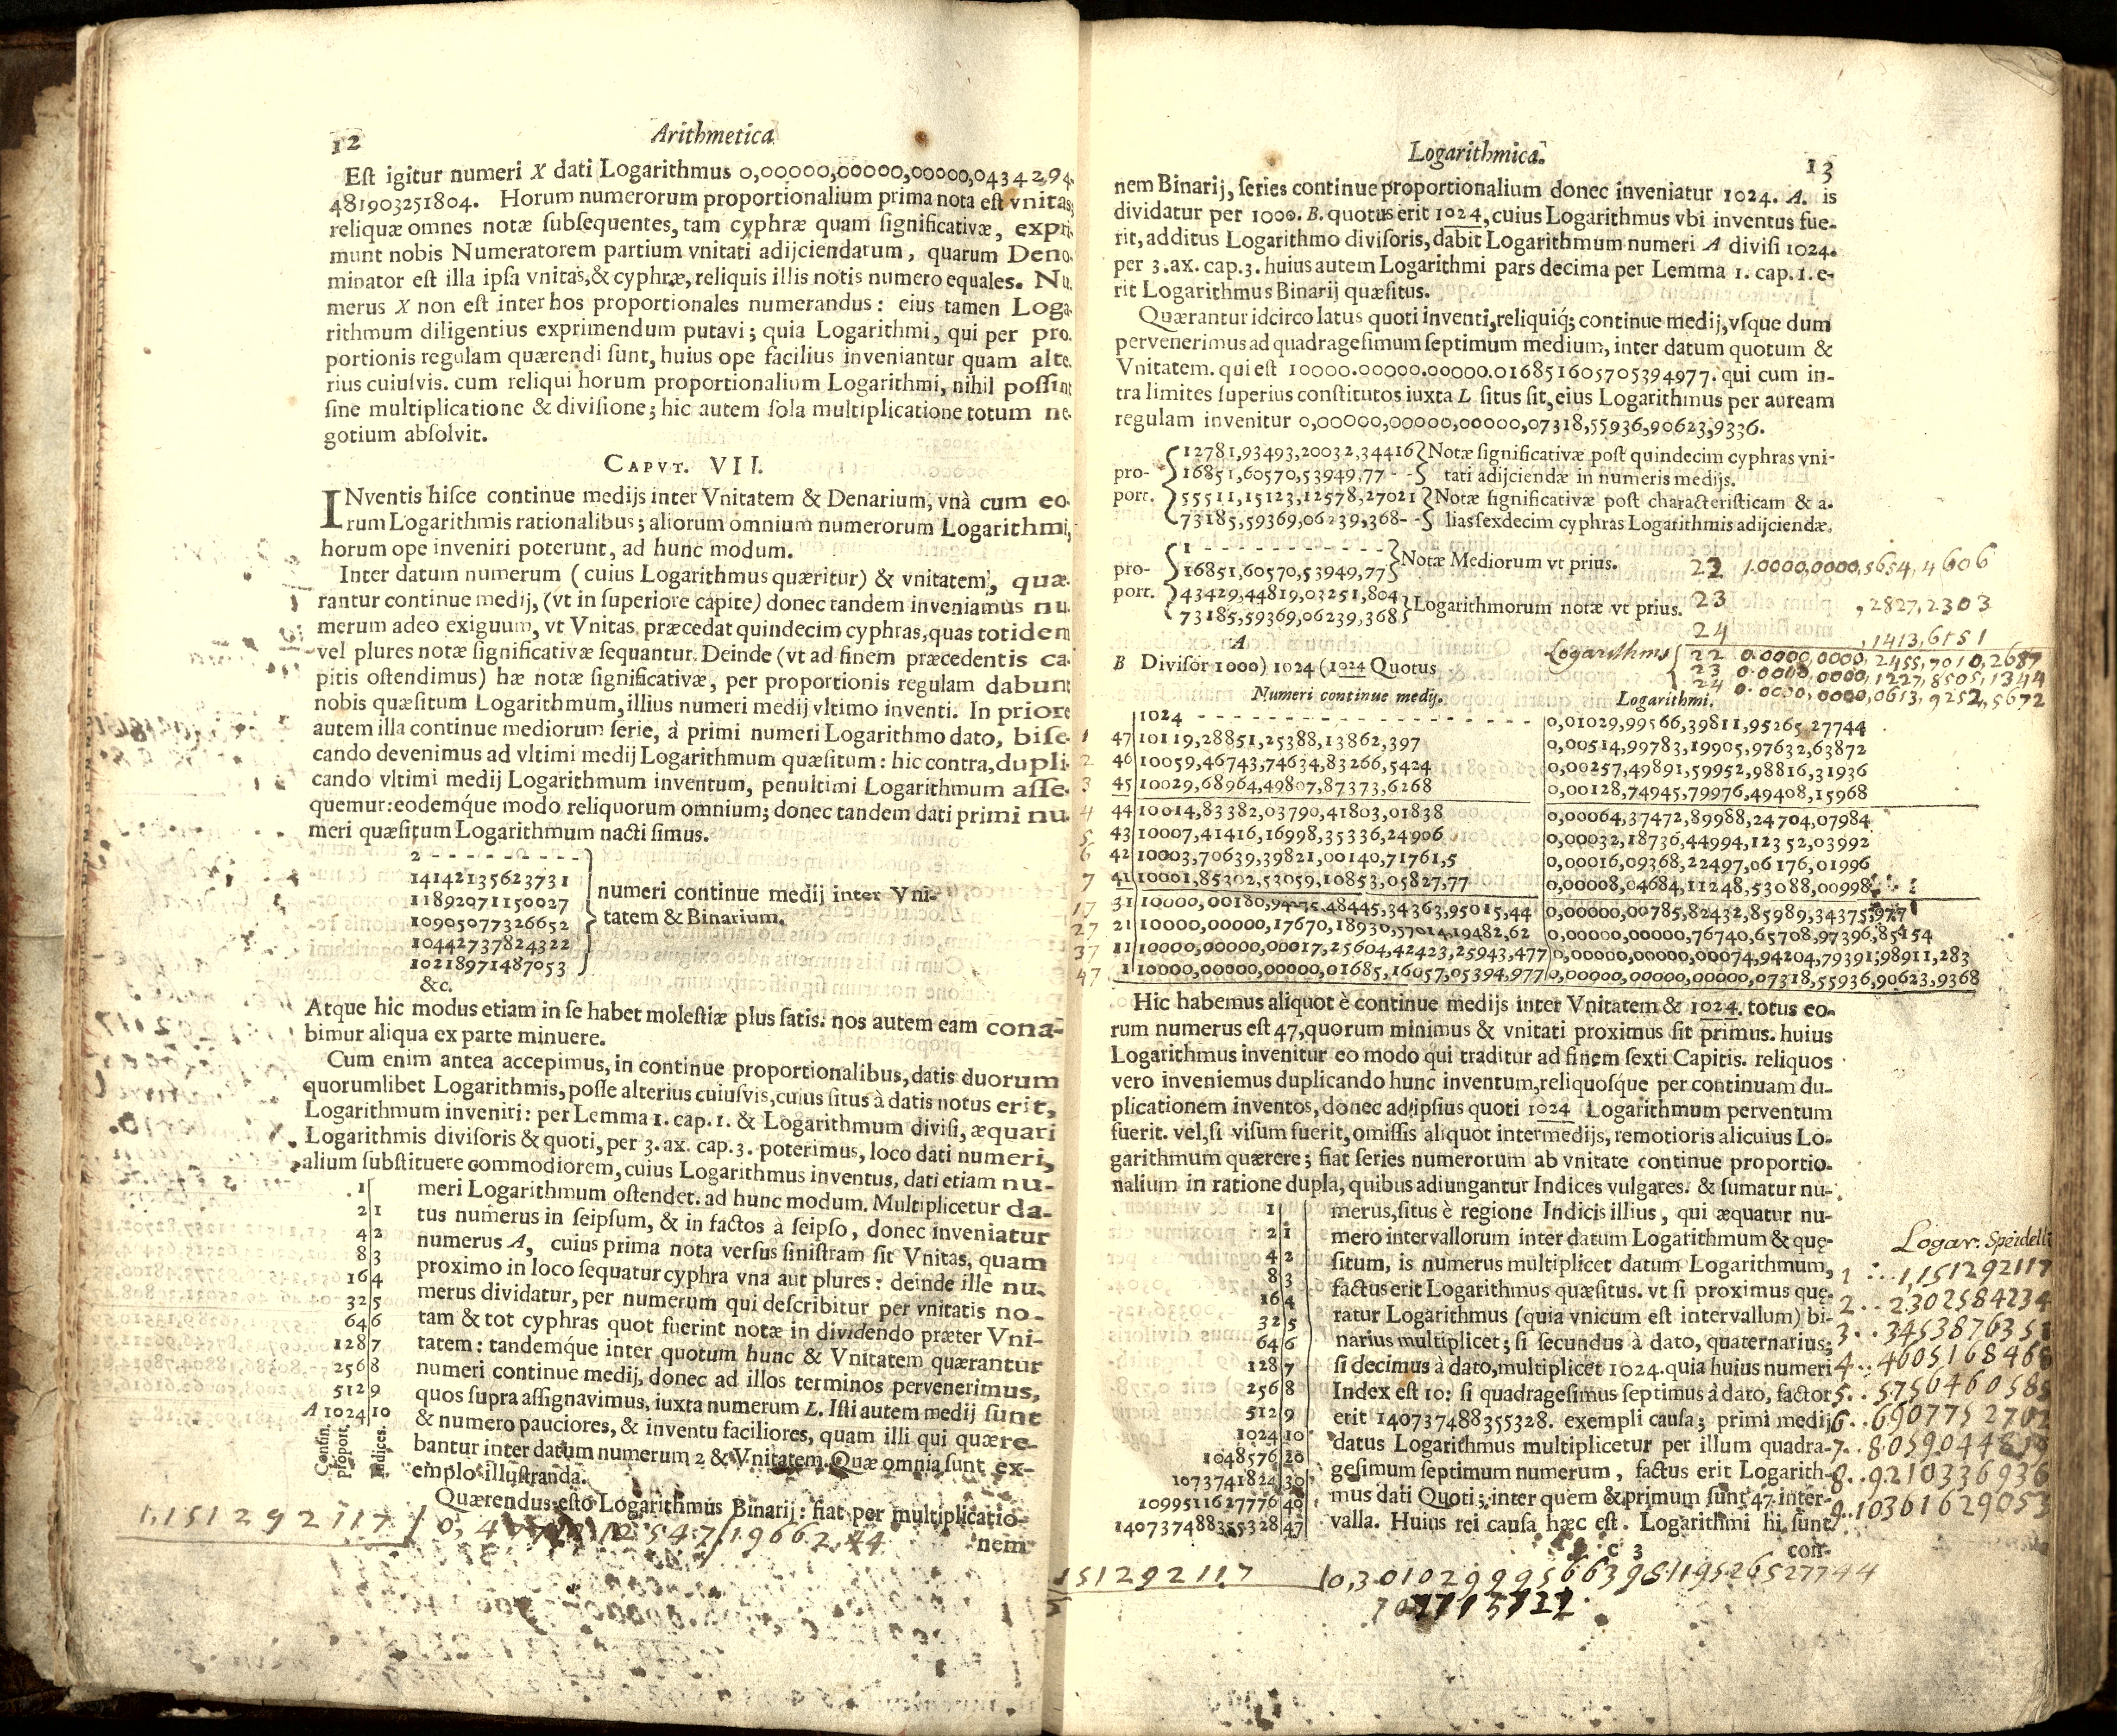 12 Arithmetica
Est igitur numeri X dati Logarithmus 0,00000,00000,00000,0434294
481903251804. Horum numerorum proportionalium prima nota est vnitas,
reliquæ omnes notæ subsequentes, tam cyphræ quam significativæ, expri-
munt nobis Numeratorem partium vnitati adijciendarum, quarum Deno-
minator est illa ipsa vnitas, & cyphræ, reliquis illis notis numero equales. Nu-
merus X non est inter hos proportionales numerandus: eius tamen Loga-
rithmum diligentius exprimendum putavi; quia Logarithmi, qui per pro-
portionis regulam quærendi sunt, huius ope facilius inveniantur quam alte-
rius cuiusvis. cum reliqui horum proportionalium Logarithmi, nihil possint
sine multiplicatione & divisione; hic autem sola multiplicatione totum ne-
gotium absolvit.
CAPVT. VII.
INventis hisce continue medijs inter Vnitatem & Denarium, vnà cum eo-
rum Logarithmis rationalibus; aliorum omnium numerorum Logarithmi,
horum ope inveniri poterunt, ad hunc modum.
Inter datum numerum (cuius Logarithmus quæritur) & vnitatem, quæ-
rantur continue medij, (vt in superiore capite) donec tandem inveniamus nu-
merum adeo exiguum, vt Vnitas præcedat quindecim cyphras, quas totidem
vel plures notæ significativæ sequantur. Deinde (vt ad finem præcedentis ca-
pitis ostendimus) hæ notæ significativæ, per proportionis regulam dabunt
nobis quæsitum Logarithmum, illius numeri medij vltimo inventi. In priore
autem illa continue mediorum serie, à primi numeri Logarithmo dato, bise-
cando devenimus ad vltimi medij Logarithmum quæsitum: hic contra, dupli-
cando vltimi medij Logarithmum inventum, penultimi Logarithmum asse-
quemur: eodemque modo reliquorum omnium; donec tandem dati primi nu-
meri quæsitum Logarithmum nacti simus.
2 - - - - - - - - - -
14142135623731
11892071150027 numeri continue medij inter Vni-
10905077326652 tatem & Binarium.
10442737824322
10218971487053
&c.
Atque hic modus etiam in se habet molestiæ plus satis: nos autem eam cona-
bimur aliqua ex parte minuere.
Cum enim antea accepimus, in continue proportionalibus, datis duorum
quorumlibet Logarithmis, posse alterius cuiusvis, cuius situs à datis notus erit,
Logarithmum inveniri: per Lemma 1. cap. 1. & Logarithmum divisi, æquari
Logarithmis divisoris & quoti, per 3. ax. cap. 3. poterimus, loco dati numeri,
alium substituere commodiorem, cuius Logarithmus inventus, dati etiam nu-
1 meri Logarithmum ostendet. ad hunc modum. Multiplicetur da-
2 1 tus numerus in seipsum, & in factos à seipso, donec inveniatur
4 2 numerus A, cuius prima nota versus sinistram sit Vnitas, quam
8 3 proximo in loco sequatur cyphra vna aut plures: deinde ille nu-
16 4 merus dividatur, per numerum qui describitur per vnitatis no-
32 5 tam & tot cyphras quot fuerint notæ in dividendo præter Vni-
64 6 tatem: tandemque inter quotum hunc & Vnitatem quærantur
128 7 numeri continue medij, donec ad illos terminos pervenerimus,
256 8 quos supra assignavimus, iuxta numerum L. Isti autem medij sunt
512 9 & numero pauciores, & inventu faciliores, quam illi qui quære-
A 1024 10 bantur inter datum numerum 2 & Vnitatem. Quæ omnia sunt ex-
Contin. proport. Indices. emplo illustranda.
Quærendus esto Logarithmus Binarij: fiat per multiplicatio-
nem
1,151292117
Logarithmica. 13
nem Binarij, series continue proportionalium donec inveniatur 1024. A. is
dividatur per 1000. B. quotus erit 1024, cuius Logarithmus vbi inventus fue-
rit, additus Logarithmo divisoris, dabit Logarithmum numeri A divisi 1024.
per 3. ax. cap. 3. huius autem Logarithmi pars decima per Lemma 1. cap. 1. e-
rit Logarithmus Binarij quæsitus.
Quærantur idcirco latus quoti inventi, reliquiq; continue medij, vsque dum
pervenerimus ad quadragesimum septimum medium, inter datum quotum &
Vnitatem. qui est 10000.00000.00000.016851605705394977. qui cum in-
tra limites superius constitutos iuxta L situs sit, eius Logarithmus per auream
regulam invenitur 0,00000,00000,00000,07318,55936,90623,9336.
12781,93493,20032,34416 Notæ significativæ post quindecim cyphras vni-
pro- 16851,60570,53949,77 - - tati adijciendæ in numeris medijs.
port. 55511,15123,12578,27021 Notæ significativæ post characteristicam & a-
73185,59369,06239,368- - lias sexdecim cyphras Logarithmis adijciendæ.
1 - - - - - - - - - - - - Notæ Mediorum vt prius.
pro- 16851,60570,53949,77
port. 43429,44819,03251,804 Logarithmorum notæ vt prius.
73185,59369,06239,368
22 1.0000,0000,5654,4606
23 ,2827,2303
24 ,1413,6151
A
B Divisor 1000) 1024 (1024 Quotus
Logarithms 22 0.0000,0000,2455,7010,2687
23 0.0000,0000,1227,8505,1344
24 0.0000,0000,0613,9252,5672
Numeri continue medij. Logarithmi.
1024 - - - - - - - - - - 0,01029,99566,39811,95265,27744
1 47 10119,28851,25388,13862,397 0,00514,99783,19905,97632,63872
2 46 10059,46743,74634,83266,5424 0,00257,49891,59952,98816,31936
3 45 10029,68964,49807,87373,6268 0,00128,74945,79976,49408,15968
4 44 10014,83382,03790,41803,01838 0,00064,37472,89988,24704,07984
5 43 10007,41416,16998,35336,24906 0,00032,18736,44994,12352,03992
6 42 10003,70639,39821,00140,71761,5 0,00016,09368,22497,06176,01996
7 41 10001,85302,53059,10853,05827,77 0,00008,04684,11248,53088,00998
17 31 10000,00180,94275,48445,34363,95015,44 0,00000,00785,82432,85989,34375,977
27 21 10000,00000,17670,18930,57014,19482,62 0,00000,00000,76740,65708,97396,85454
37 11 10000,00000,00017,25604,42423,25943,477 0,00000,00000,00074,94204,79391,98911,283
47 1 10000,00000,00000,01685,16057,05394,977 0,00000,00000,00000,07318,55936,90623,9368
Hic habemus aliquot è continue medijs inter Vnitatem & 1024. totus eo-
rum numerus est 47, quorum minimus & vnitati proximus sit primus. huius
Logarithmus invenitur eo modo qui traditur ad finem sexti Capitis. reliquos
vero inveniemus duplicando hunc inventum, reliquosque per continuam du-
plicationem inventos, donec ad ipsius quoti 1024 Logarithmum perventum
fuerit. vel, si visum fuerit, omissis aliquot intermedijs, remotioris alicuius Lo-
garithmum quærere; fiat series numerorum ab vnitate continue proportio-
nalium in ratione dupla, quibus adiungantur Indices vulgares. & sumatur nu-
1 merus, situs è regione Indicis illius, qui æquatur nu-
2 1 mero intervallorum inter datum Logarithmum & quę-
4 2 situm, is numerus multiplicet datum Logarithmum,
8 3 factus erit Logarithmus quæsitus. vt si proximus quę-
16 4 ratur Logarithmus (quia vnicum est intervallum) bi-
32 5 narius multiplicet; si secundus à dato, quaternarius;
64 6 si decimus à dato, multiplicet 1024. quia huius numeri
128 7 Index est 10: si quadragesimus septimus à dato, factor
256 8 erit 140737488355328. exempli causa; primi medij
512 9 datus Logarithmus multiplicetur per illum quadra-
1024 10 gesimum septimum numerum, factus erit Logarith-
1048576 20 mus dati Quoti; inter quem & primum sunt 47 inter-
1073741824 30 valla. Huius rei causa hæc est. Logarithmi hi sunt
1099511627776 40
140737488355328 47
C 3 con-
Logar: Speidelli
1 : . . 1,151292117
2 . . 2302584234
3 . . 3453876351
4 . . 4605168468
5 . . 5756460585
6 . . 6907752702
7 . . 8059044819
8 . . 9210336936
9 . 10361629053
151292117 0,30102999566398119526527744